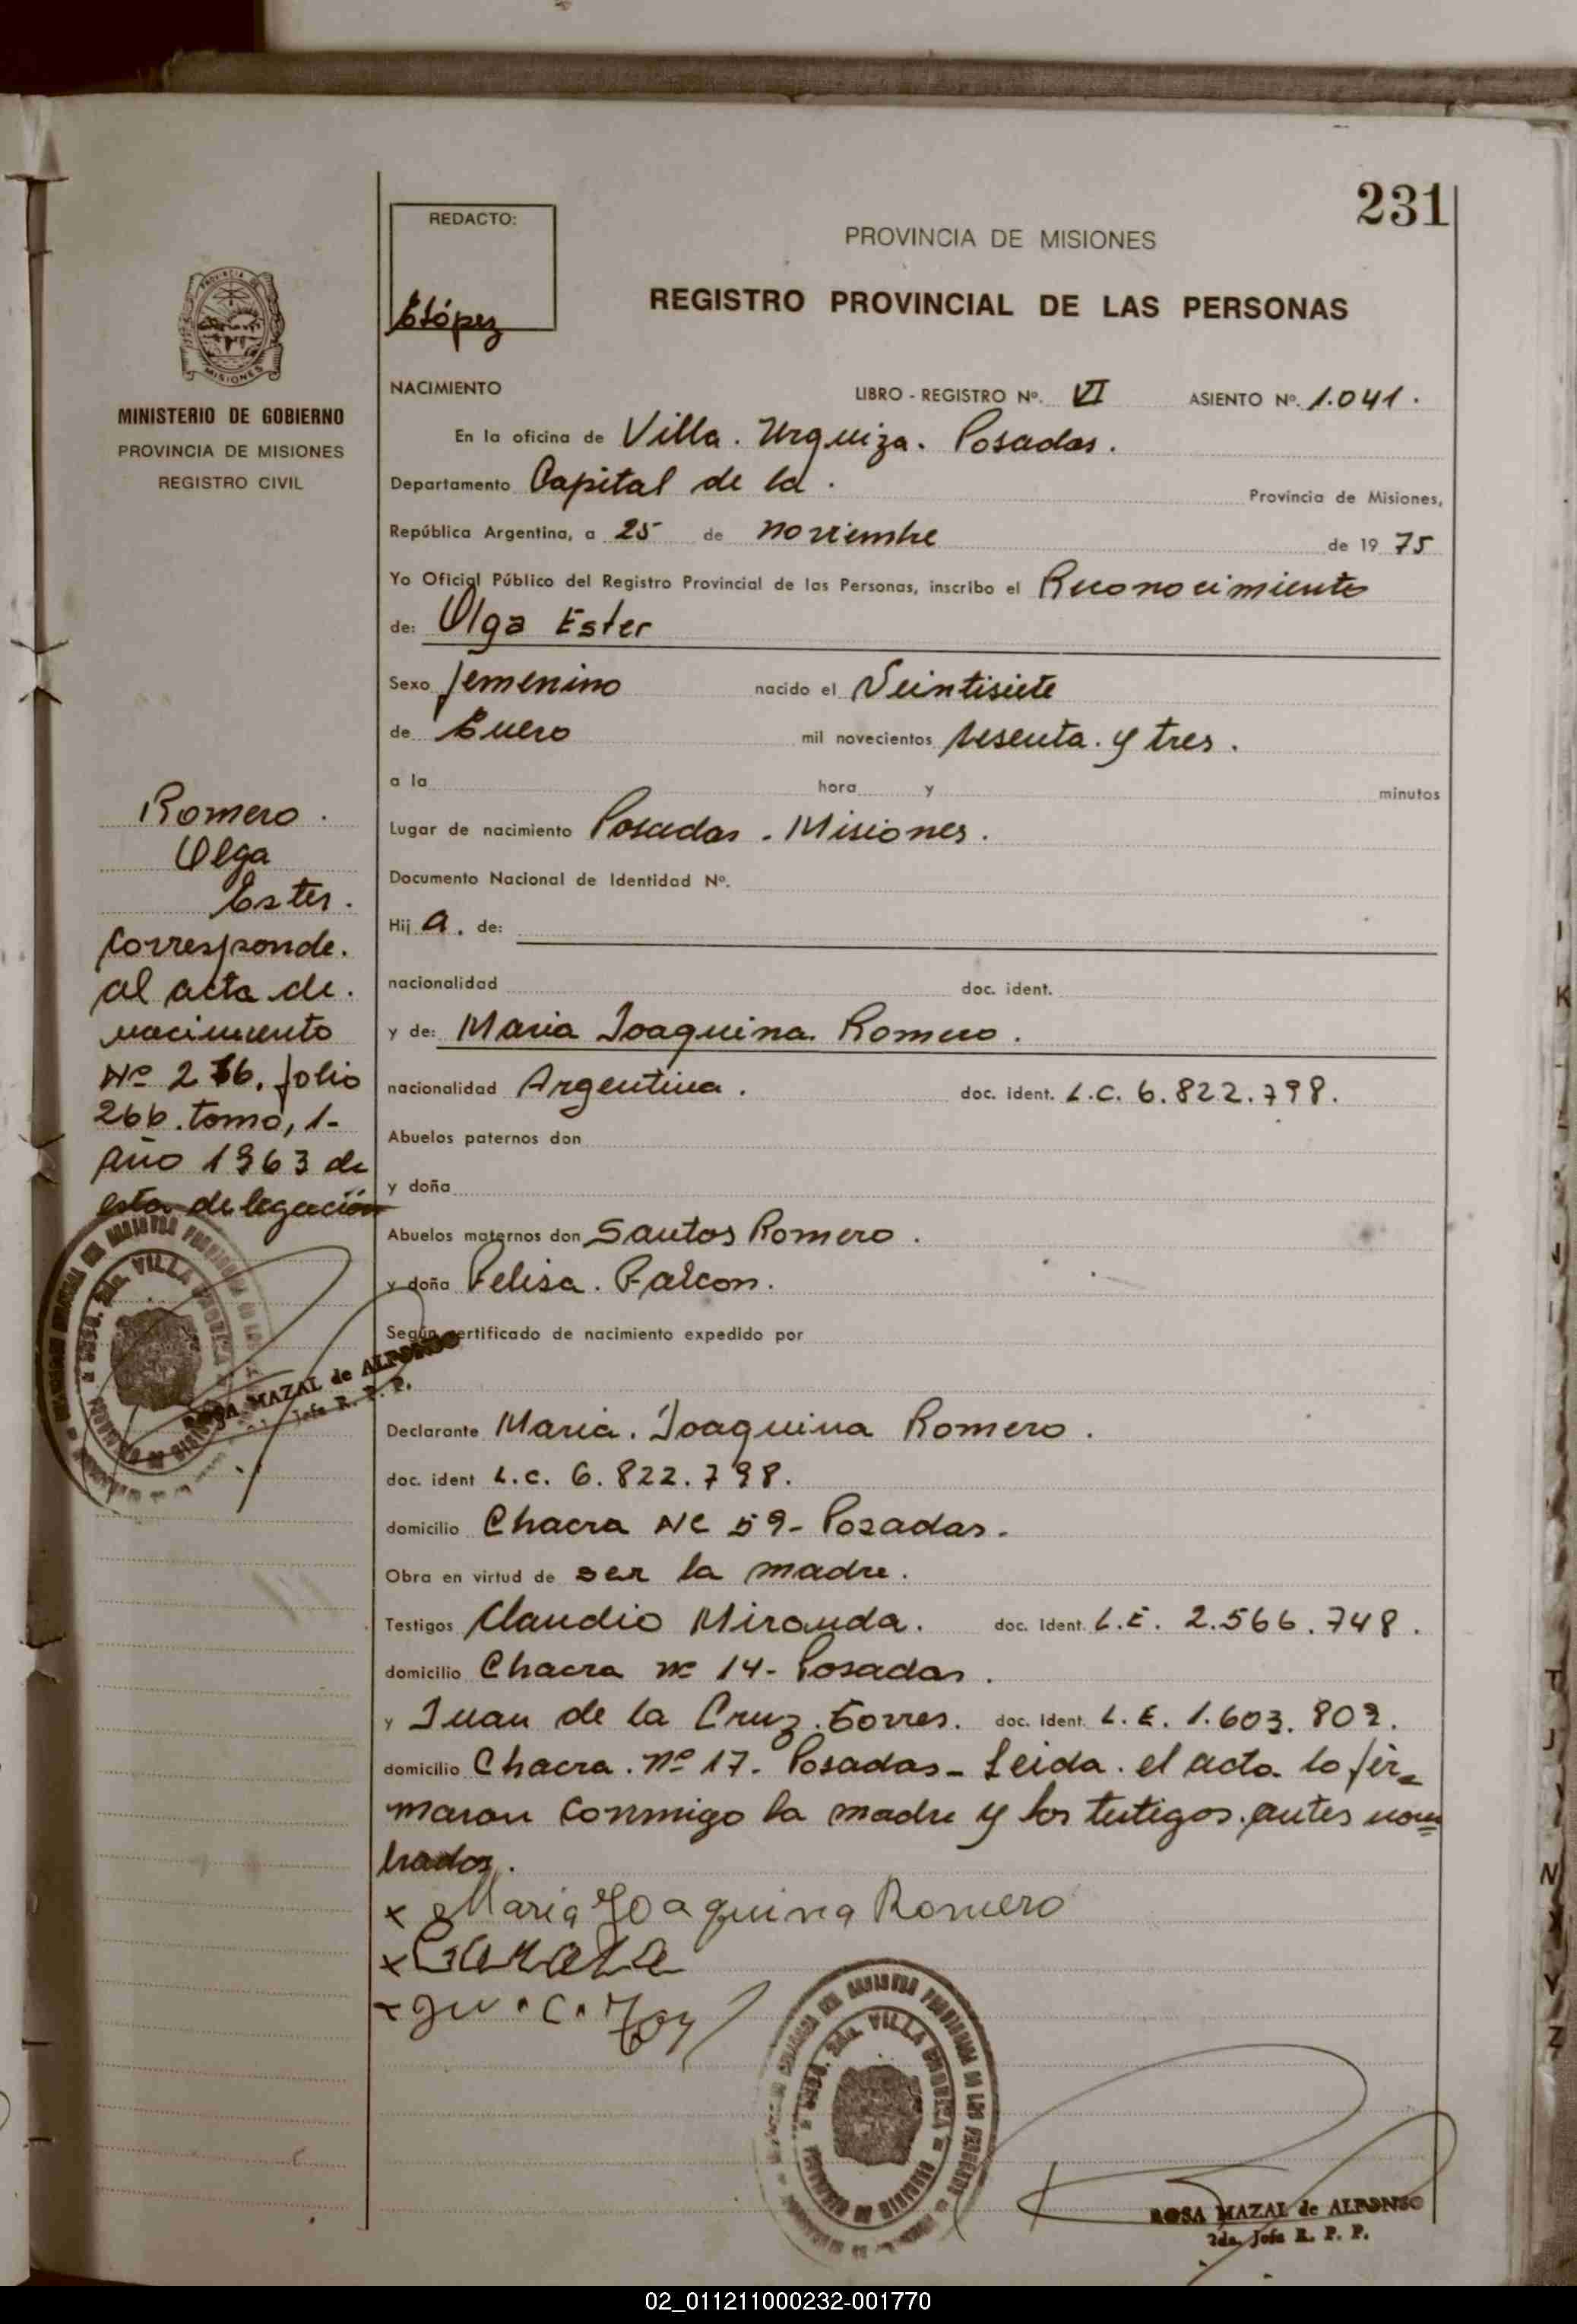 231
REDACTO:
ELópez
PROVINCIA DE MISIONES
REGISTRO PROVINCIAL DE LAS PERSONAS
PROVINCIA DE
MISIONES
MINISTERIO DE GOBIERNO
PROVINCIA DE MISIONES
REGISTRO CIVIL
Romero.
Olga
Ester.
Corresponde.
al acta de.
nacimiento
Nº folio
266. tomo, 1-
año 1963 de
esta delegación
VILLA URQUIZA
ROSA MAZAL de ALFONSO
2da. Jefa R. P. P.
NACIMIENTO LIBRO - REGISTRO Nº. VI ASIENTO Nº. 1.041.
En la oficina de Villa. Urquiza. Posadas.
Departamento Capital de la. Provincia de Misiones,
República Argentina, a 25 de noviembre de 19 75
Yo Oficial Público del Registro Provincial de las Personas, inscribo el Reconocimiento
de: Olga Ester
Sexo femenino nacido el Veintisiete
de Enero mil novecientos sesenta. y tres.
a la hora y minutos
Lugar de nacimiento Posadas. Misiones.
Documento Nacional de Identidad Nº.
Hij a. de:
nacionalidad doc. ident.
y de: Maria Joaquina. Romero.
nacionalidad Argentina. doc. ident. L.C. 6.822.798.
Abuelos paternos don
y doña
Abuelos maternos don Santos Romero.
y doña Felisa. Falcon.
Según certificado de nacimiento expedido por
Declarante Maria. Joaquina Romero.
doc. ident L.C. 6.822.798.
domicilio Chacra Nº 59- Posadas.
Obra en virtud de ser la madre.
Testigos Claudio Miranda. doc. Ident. L.E. 2.566.748.
domicilio Chacra nº 14- Posadas.
y Juan de la Cruz. Torres. doc. Ident. L.E. 1.603.802.
domicilio Chacra. Nº 17- Posadas- Leida. el acta lo fir=
maron conmigo la madre y los testigos. antes nom=
brados.
x Maria Joaquina Romero
x
x
VILLA URQUIZA
ROSA MAZAL de ALFONSO
2da. Jefa R. P. P.
I
K
T
J
N
X
Y
Z
02_011211000232-001770